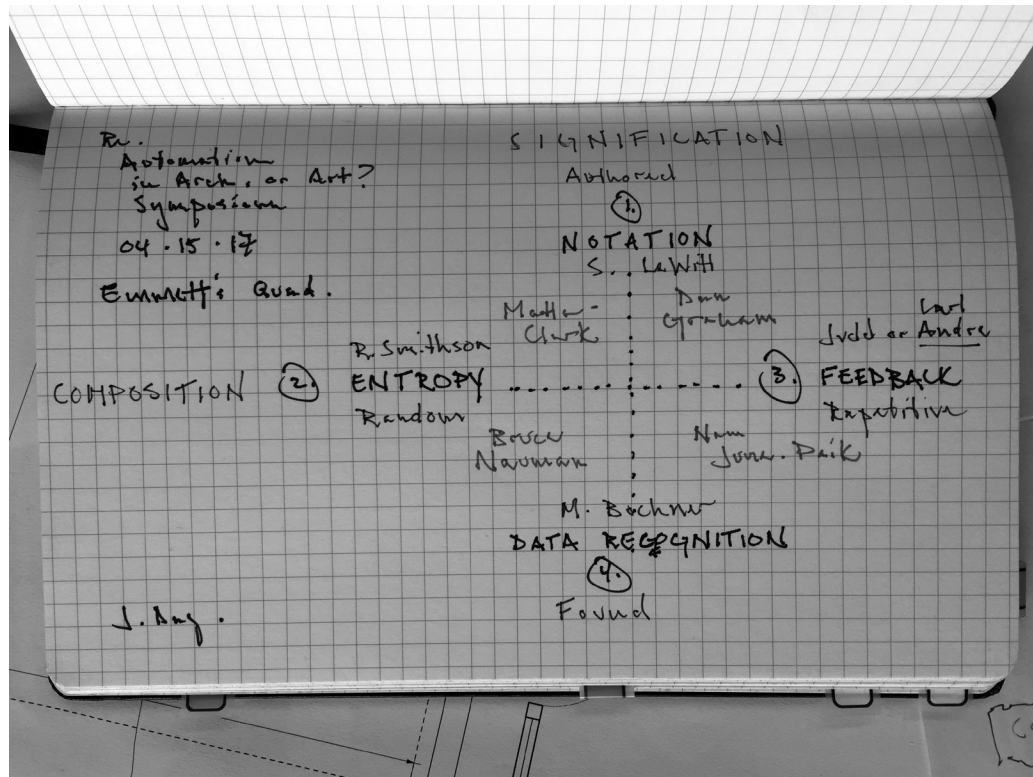 Re.
Automation
in Arch. or Art?
Symposium
04.15.17
Emmett's Quad.
SIGNIFICATION
Authored
1.
NOTATION
S. LeWitt
Matta-
Clark
Dan
Graham
R. Smithson
Carl
Judd or Andre
COMPOSITION 2. ENTROPY 3. FEEDBACK
Random
Repetitive
Bruce
Nauman
Nam
June. Paik
M. Bochner
DATA RECOGNITION
4.
Found